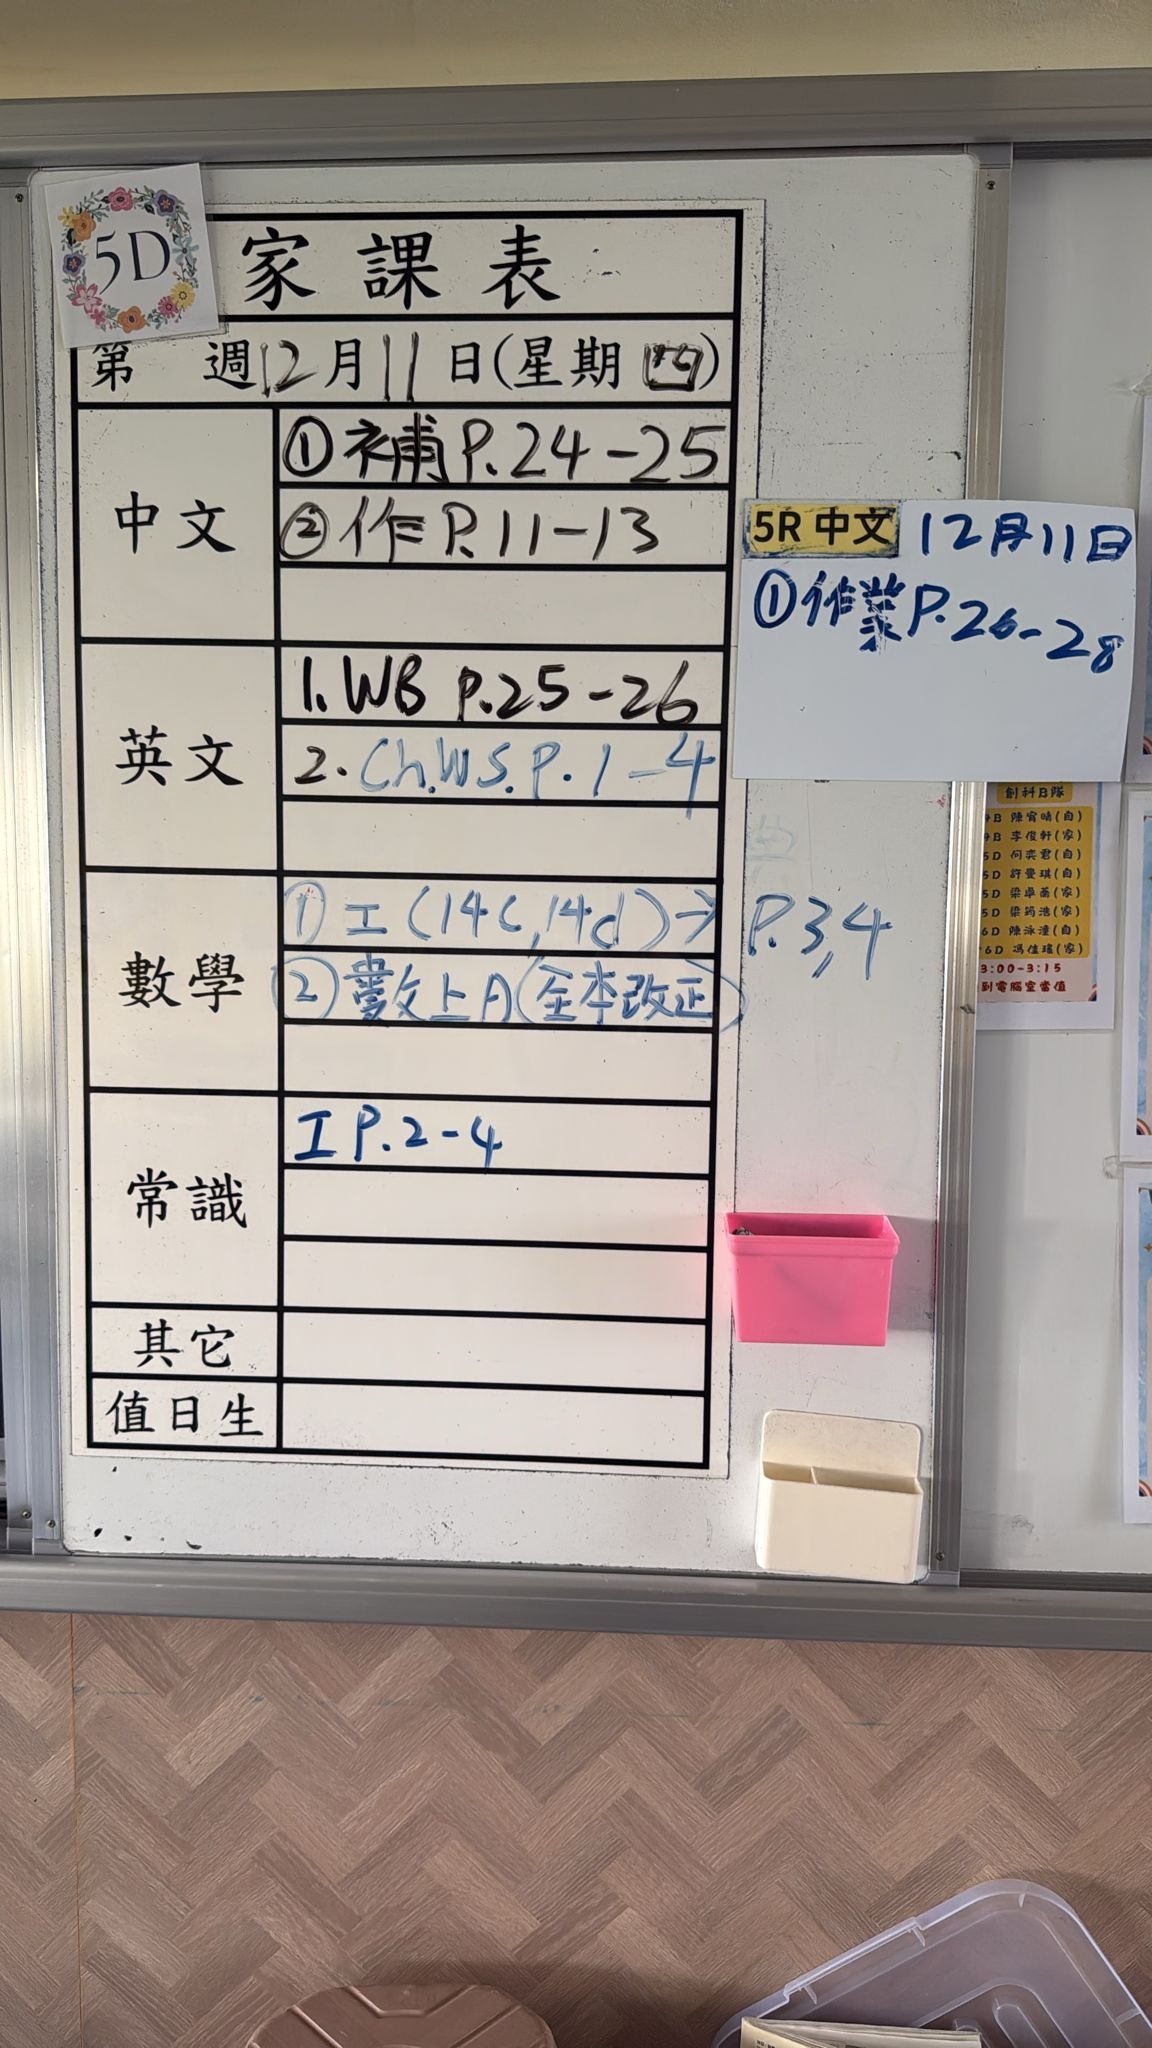 5D
家課表
第 週12月11日(星期四)
中文
①補P.24-25
②作P.11-13
英文
1.WB P.25-26
2.Ch.WS.P.1-4
數學
①工(14c,14d)→P.3,4
②數上A(全本改正)
常識
工P.2-4
其它
值日生
5R 中文 12月11日
①作業P.26-28
創科B隊
B 陳宥晴(自)
B 李俊軒(家)
5D 何奕君(自)
5D 許曼琪(自)
5D 梁卓喬(家)
5D 梁筠浩(家)
6D 陳泳潼(自)
6D 馮佳瑤(家)
3:00-3:15
到電腦室當值